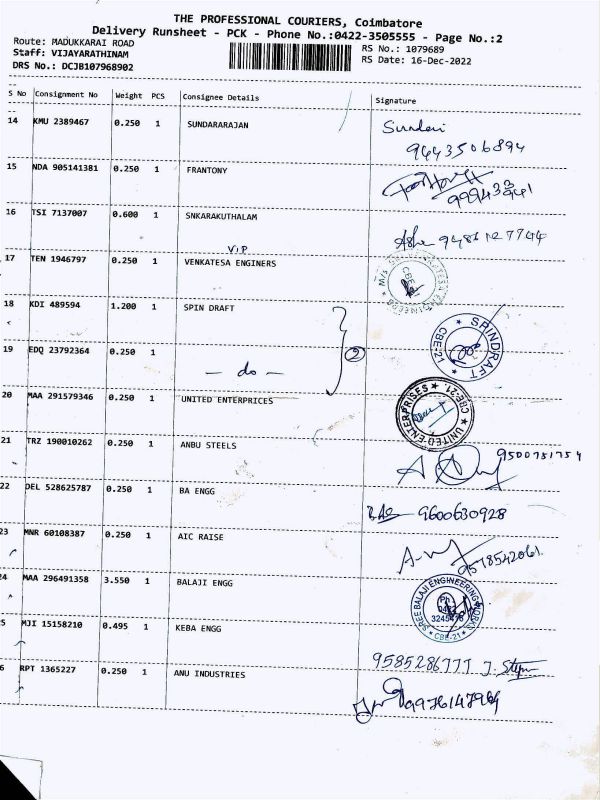 THE PROFESSIONAL COURIERS, Coimbatore
Delivery Runsheet - PCK - Phone No.:0422-3505555 - Page No.:2
Route: MADUKKARAI ROAD
RS No.: 1079689
Staff: VIJAYARATHINAM
RS Date: 16-Dec-2022
DRS No.: DCJB107968902
S No Consignment No Weight PCS Consignee Details Signature
14 KMU 2389467 0.250 1 SUNDARARAJAN Sundari
9443506894
15 NDA 905141381 0.250 1 FRANTONY
16 TSI 7137007 0.600 1 SNKARAKUTHALAM
VIP
17 TEN 1946797 0.250 1 VENKATESA ENGINERS
18 KDI 489594 1.200 1 SPIN DRAFT
SPINDRAFT CBE-21
19 EDQ 23792364 0.250 1
— do — 2
20 MAA 291579346 0.250 1 UNITED ENTERPRICES
UNITED ENTERPRISES CBE-21
21 TRZ 190010262 0.250 1 ANBU STEELS
9500751754
22 DEL 528625787 0.250 1 BA ENGG
9600630928
23 MNR 60108387 0.250 1 AIC RAISE
24 MAA 296491358 3.550 1 BALAJI ENGG
SREE BALAJI ENGINEERING WORKS CBE-21
5 MJI 15158210 0.495 1 KEBA ENGG
6 RPT 1365227 0.250 1 ANU INDUSTRIES